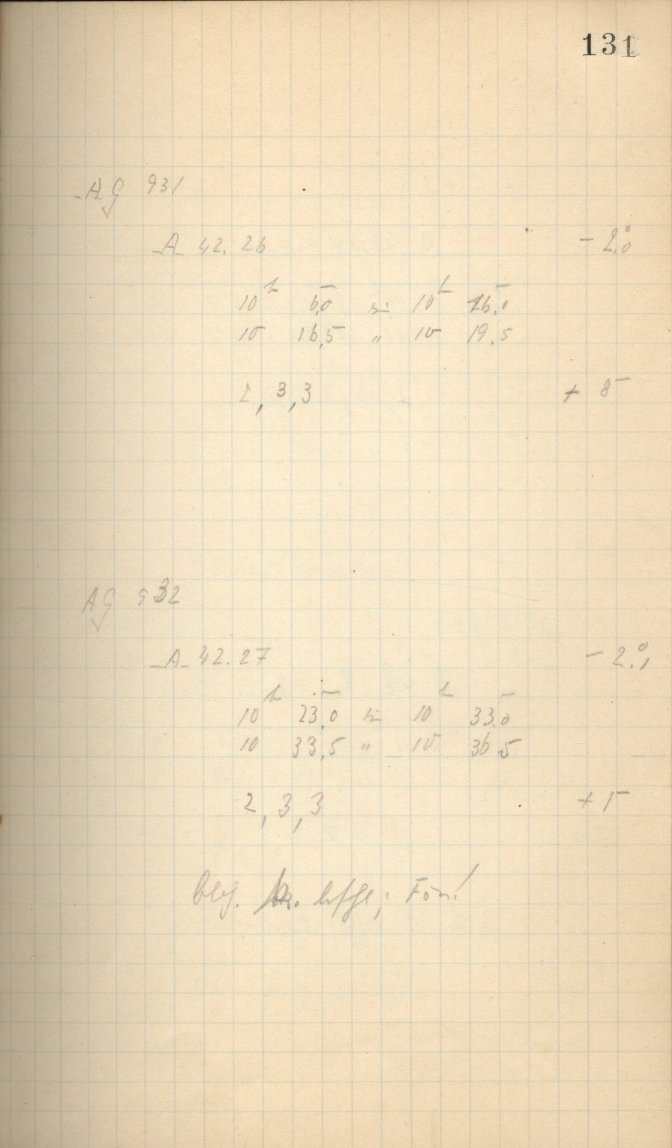 131
AG 931
A 42.26 - 2.°0
10h 6,0 bis 10h 16.0
10 16,5 " 10 19.5
2, 3, 3 + 8
AG 932
A 42.27 - 2.°1
10h 23,0 bis 10h 33.0
10 33,5 " 10 36.5
2, 3, 3
Fön!